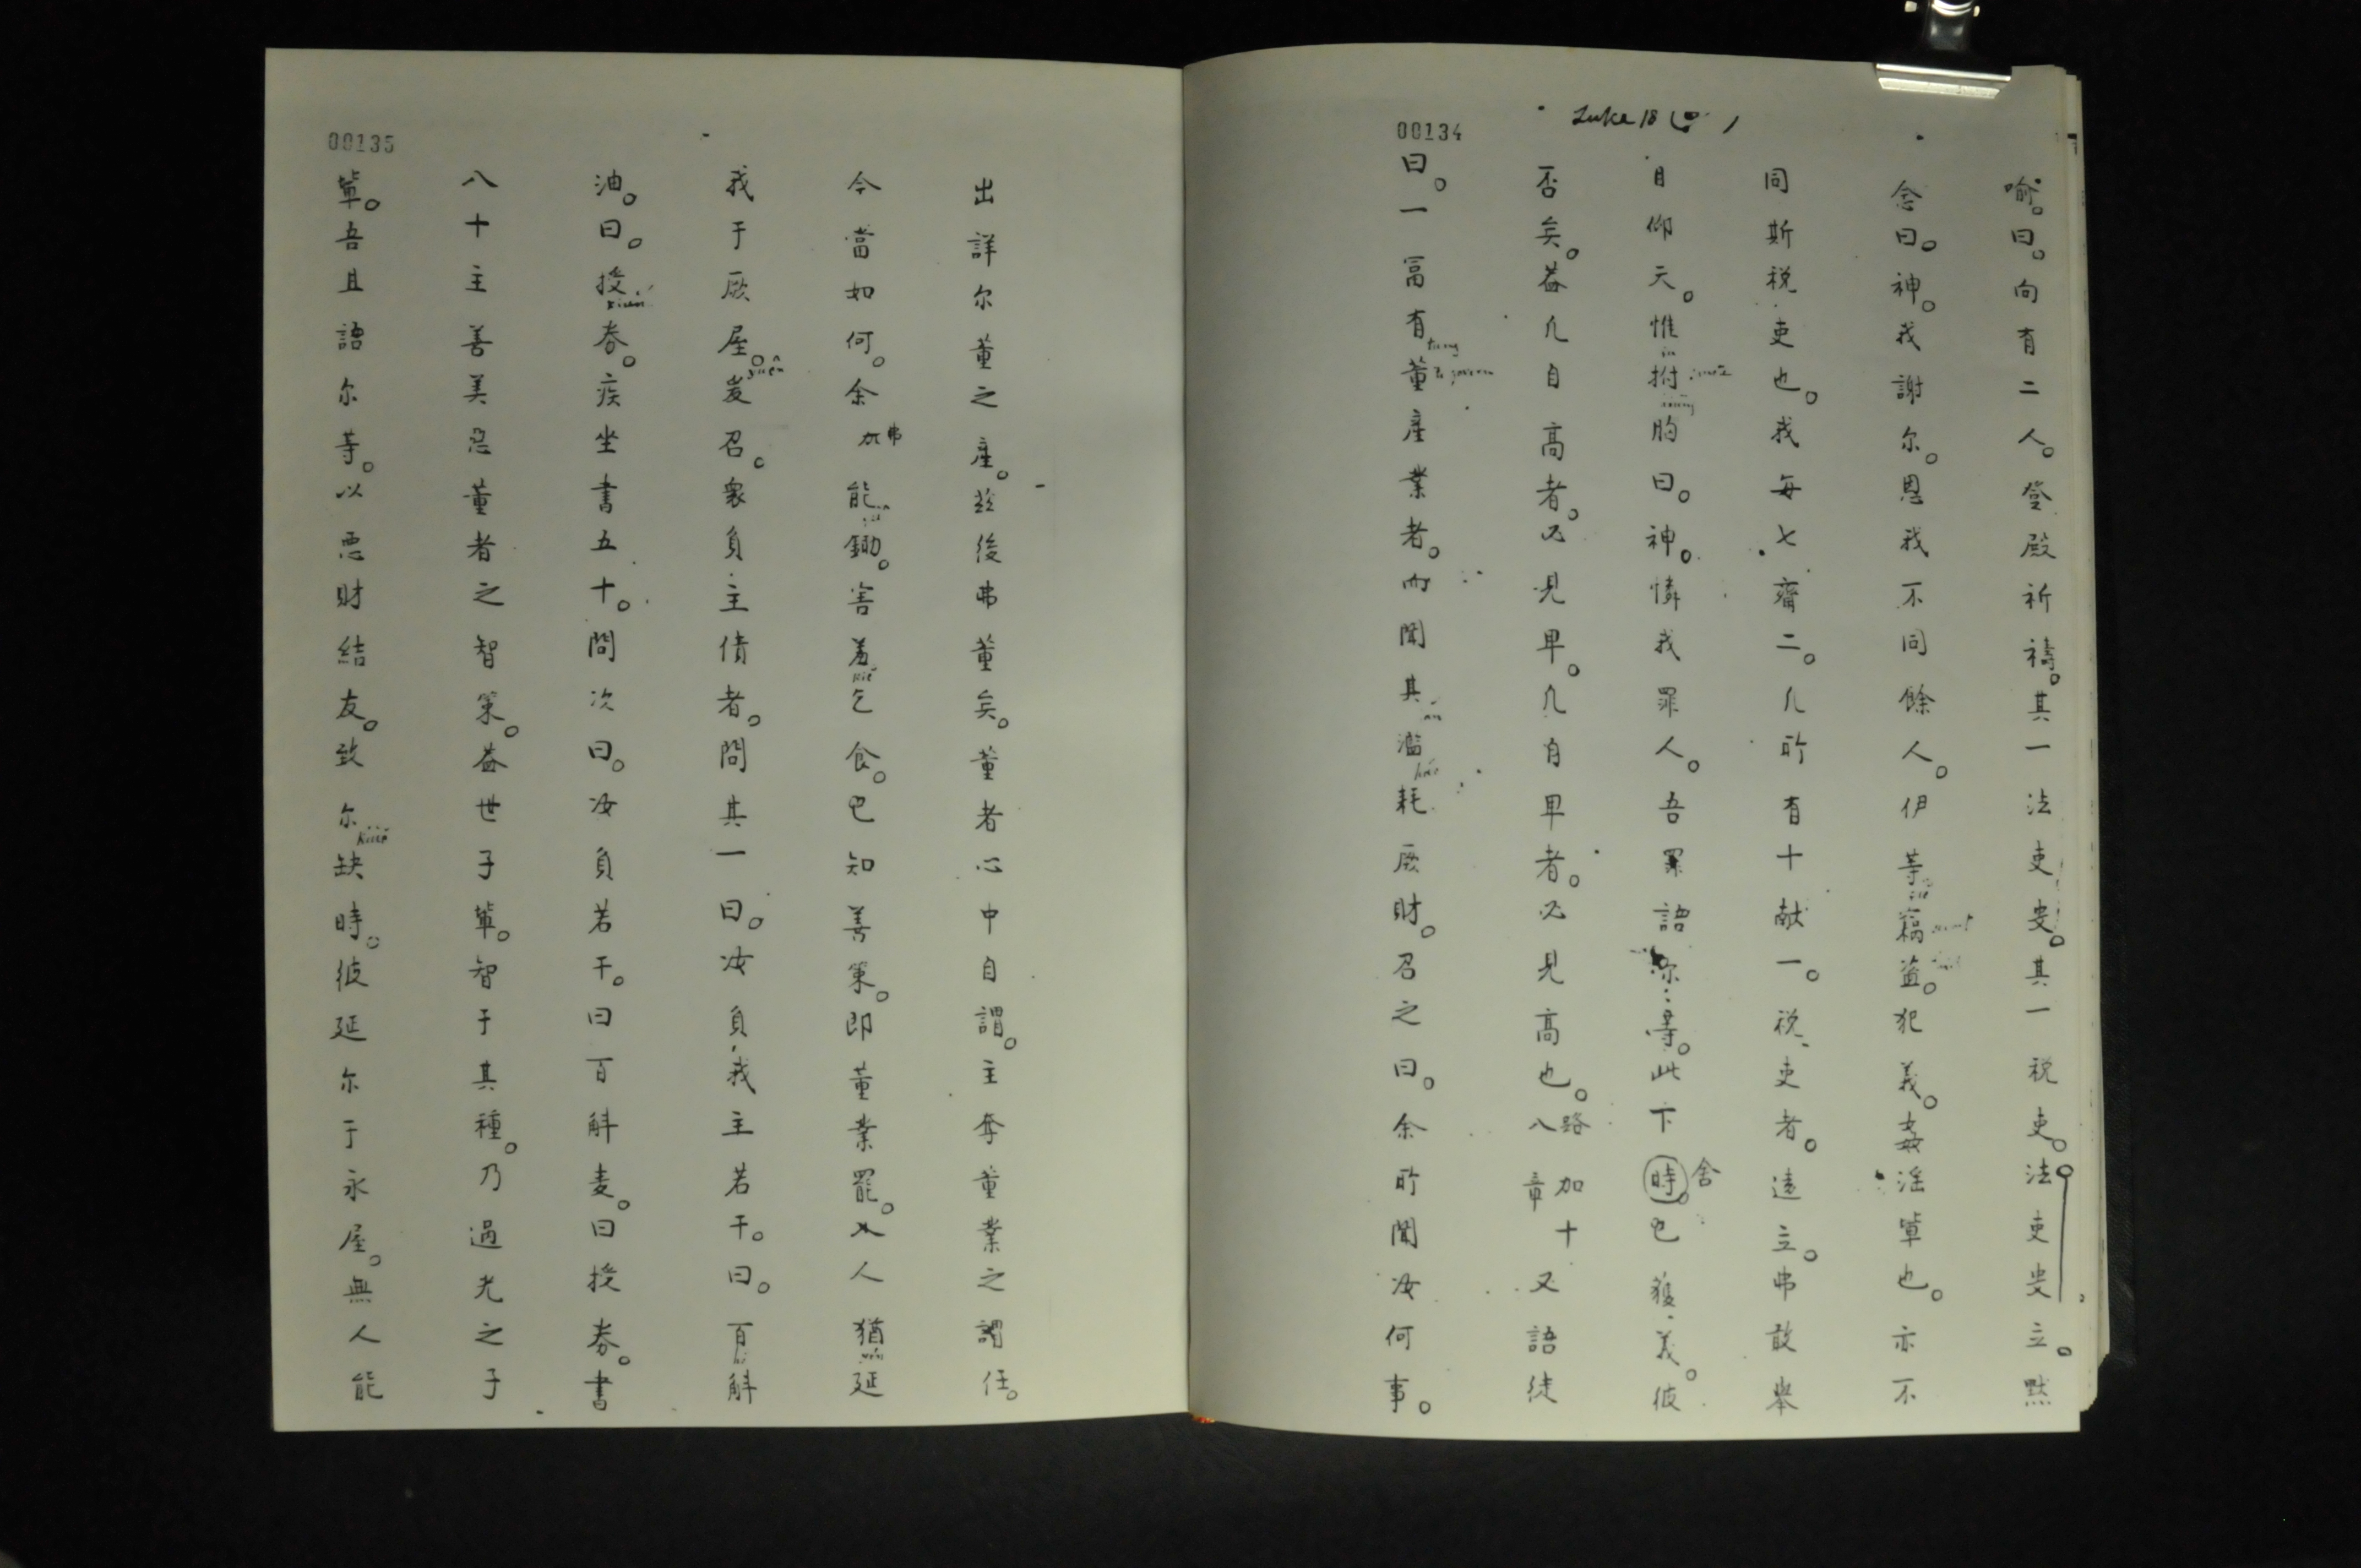 00134
Luke 18
喻。曰。向有二人。登殿祈禱。其一法吏叟。其一稅吏。法吏叟立。默
念曰。神。我謝尔。恩我不同餘人。伊等竊盜。犯義。姦淫輩也。亦不
同斯稅吏也。我每七齋二。凡所有十献一。稅吏者。遠立。弗敢舉
目仰天。惟拊胸曰。神。憐我罪人。吾累語尔等。此下時。舍已獲義。彼
否矣。蓋凡自高者。必見卑。凡自卑者。必見高也。路加十八章又語徒
曰。一富有董產業者。而聞其濫耗厥財。召之曰。余所聞汝何事。
00135
出詳尔董之產。茲後弗董矣。董者心中自謂。主奪董業之謂任。
今當如何。余弗能鋤。害羞乞食。已知善策。即董業罷。人猶延
我于厥屋。爰召。衆負主債者。問其一曰。汝負我主若干。曰。百斛
油。曰。授券。疾坐書五十。問次曰。汝負若干。曰百斛麦。曰授券。書
八十主善美惡董者之智策。蓋世子軰。智于其種。乃過光之子
軰。吾且語尔等。以惡財結友。致尔缺時。彼延尔于永屋。無人能